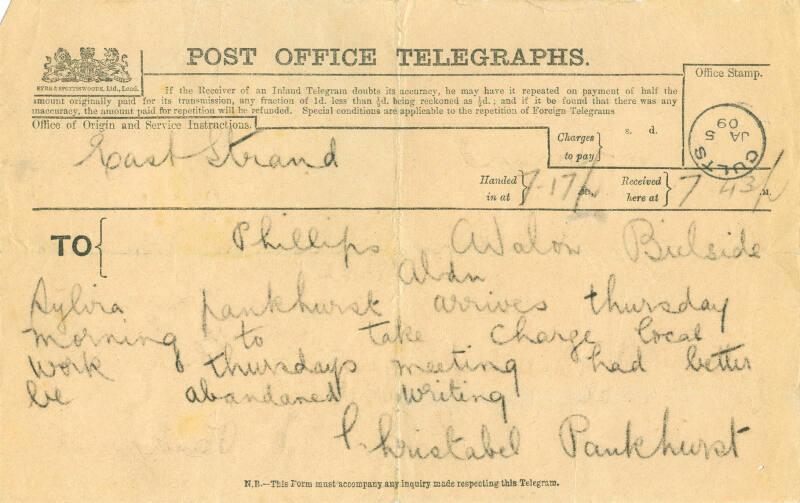 POST OFFICE TELEGRAPHS.
EYRE & SPOTTISWOODE, Ltd., Lond.
If the Receiver of an Inland Telegram doubts its accuracy, he may have it repeated on payment of half the
amount originally paid for its transmission, any fraction of 1d. less than ½d. being reckoned as ½d.; and if it be found that there was any
inaccuracy, the amount paid for repetition will be refunded. Special conditions are applicable to the repetition of Foreign Telegrams
Office Stamp.
CULTS
JA 5
09
Office of Origin and Service Instructions.
East Strand
Charges to pay
s. d.
Handed in at
7.17
Received here at
7 43
M.
TO
Phillips Avalon Bielside
Abdn
Sylvia pankhurst arrives thursday
morning to take charge local
work thursdays meeting had better
be abandaned writing
Christabel Pankhurst
N.B.—This Form must accompany any inquiry made respecting this Telegram.